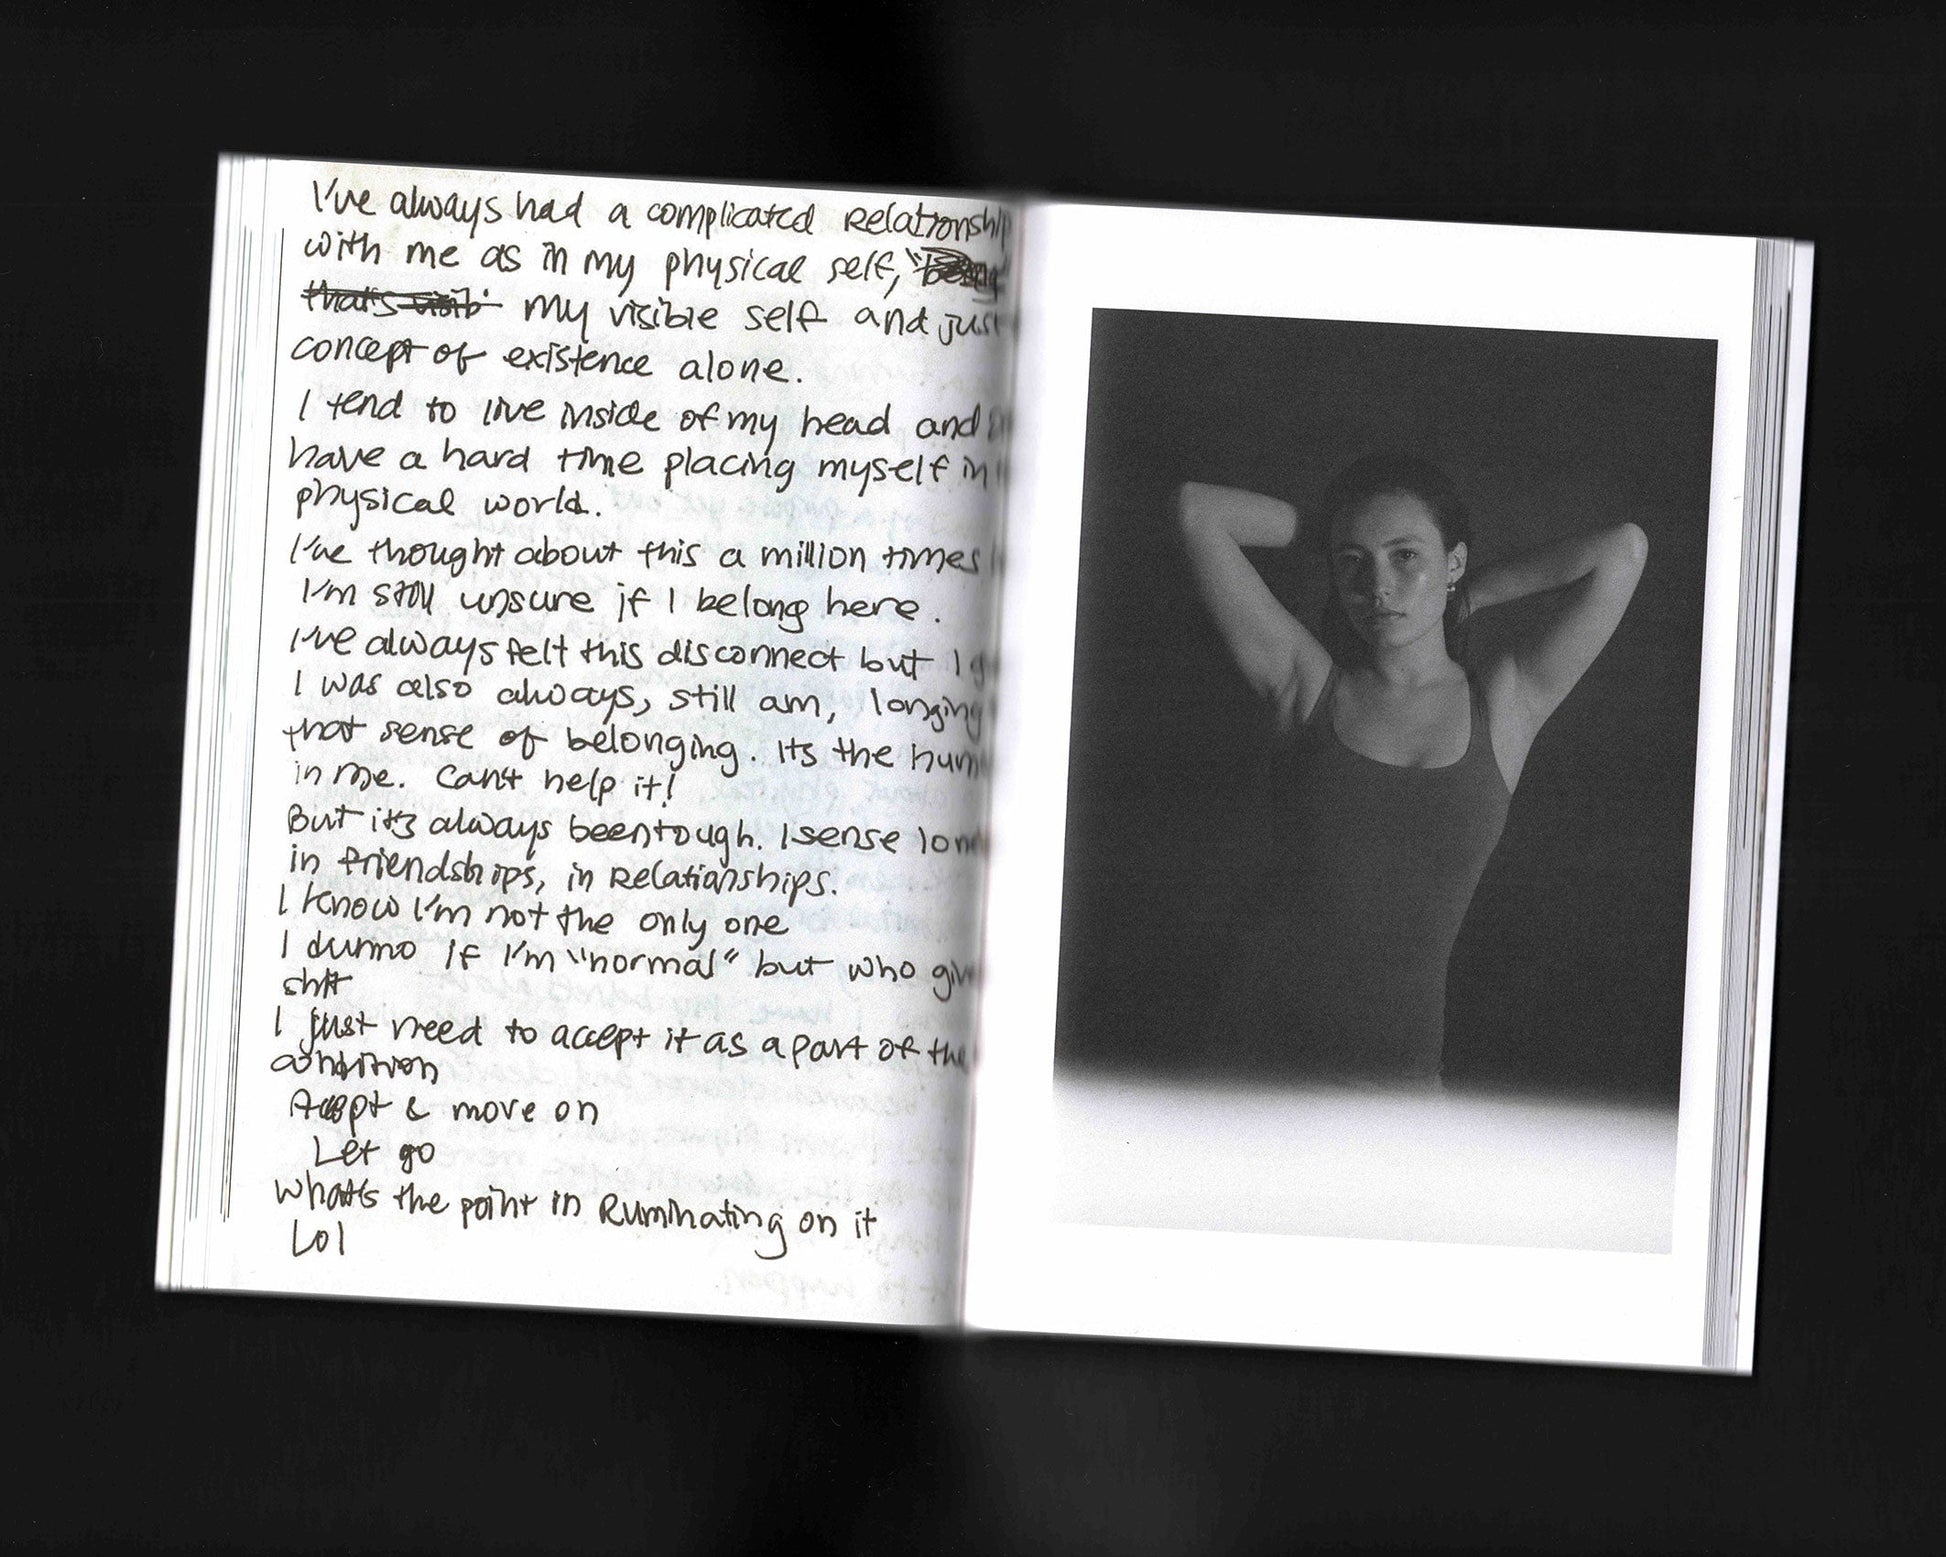 I've always had a complicated Relationship
with me as in my physical self,
that's visib my visible self and just
concept of existence alone.
I tend to live inside of my head and
have a hard time placing myself in
physical world.
I've thought about this a million times
I'm still unsure if I belong here.
I've always felt this disconnect but I
I was also always, still am, longing
that sense of belonging. Its the hum
in me. Can't help it!
But it's always been tough. I sense lon
in friendships, in Relationships.
I know I'm not the only one
I dunno If I'm "normal" but who giv
shit
I just need to accept it as a part of the
condition
Accept & move on
Let go
What's the point in Ruminating on it
Lol